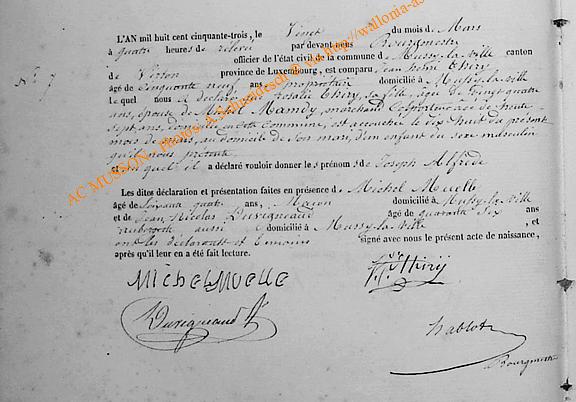 L'AN mil huit cent cinquante-trois, le Vingt du mois de Mars
à quatre heures de relevée par devant nous Bourgmestre
officier de l'état civil de la commune de Mussy-la-Ville canton
de Virton province de Luxembourg, est comparu Jean Henri Thiry
âgé de Cinquante neuf ans, propriétaire domicilié à Mussy-la-ville
Le quel nous a déclaré que Rosalie Thiry sa fille, âgée de Vingt quatre
ans, épouse de Michel Mamdy, marchand Colporteur âgé de trente
sept ans, domicilié en cette Commune, est accouchée le Dix huit du présent
mois de mars, au domicile de son mari, d'un enfant du sexe masculin
qu'il nous présente
et au quel il a déclaré vouloir donner les prénoms de Joseph Alfred
Les dites déclaration et présentation faites en présence de Michel Muelle
âgé de Soixante quatre ans, Maçon domicilié à Mussy-la-Ville
et de Jean Nicolas Duvigneaud âgé de quarante Six ans
aussi domicilié à Mussy-la-Ville , et
ont les déclarant et témoins signé avec nous le présent acte de naissance,
après qu'il leur en a été fait lecture.
Michel Muelle
Thiry
Duvigneaud
hablot
Bourgmestre
N° 7
AC MUSSON - Photos: A. Schmadesch © via http://wallonia-as